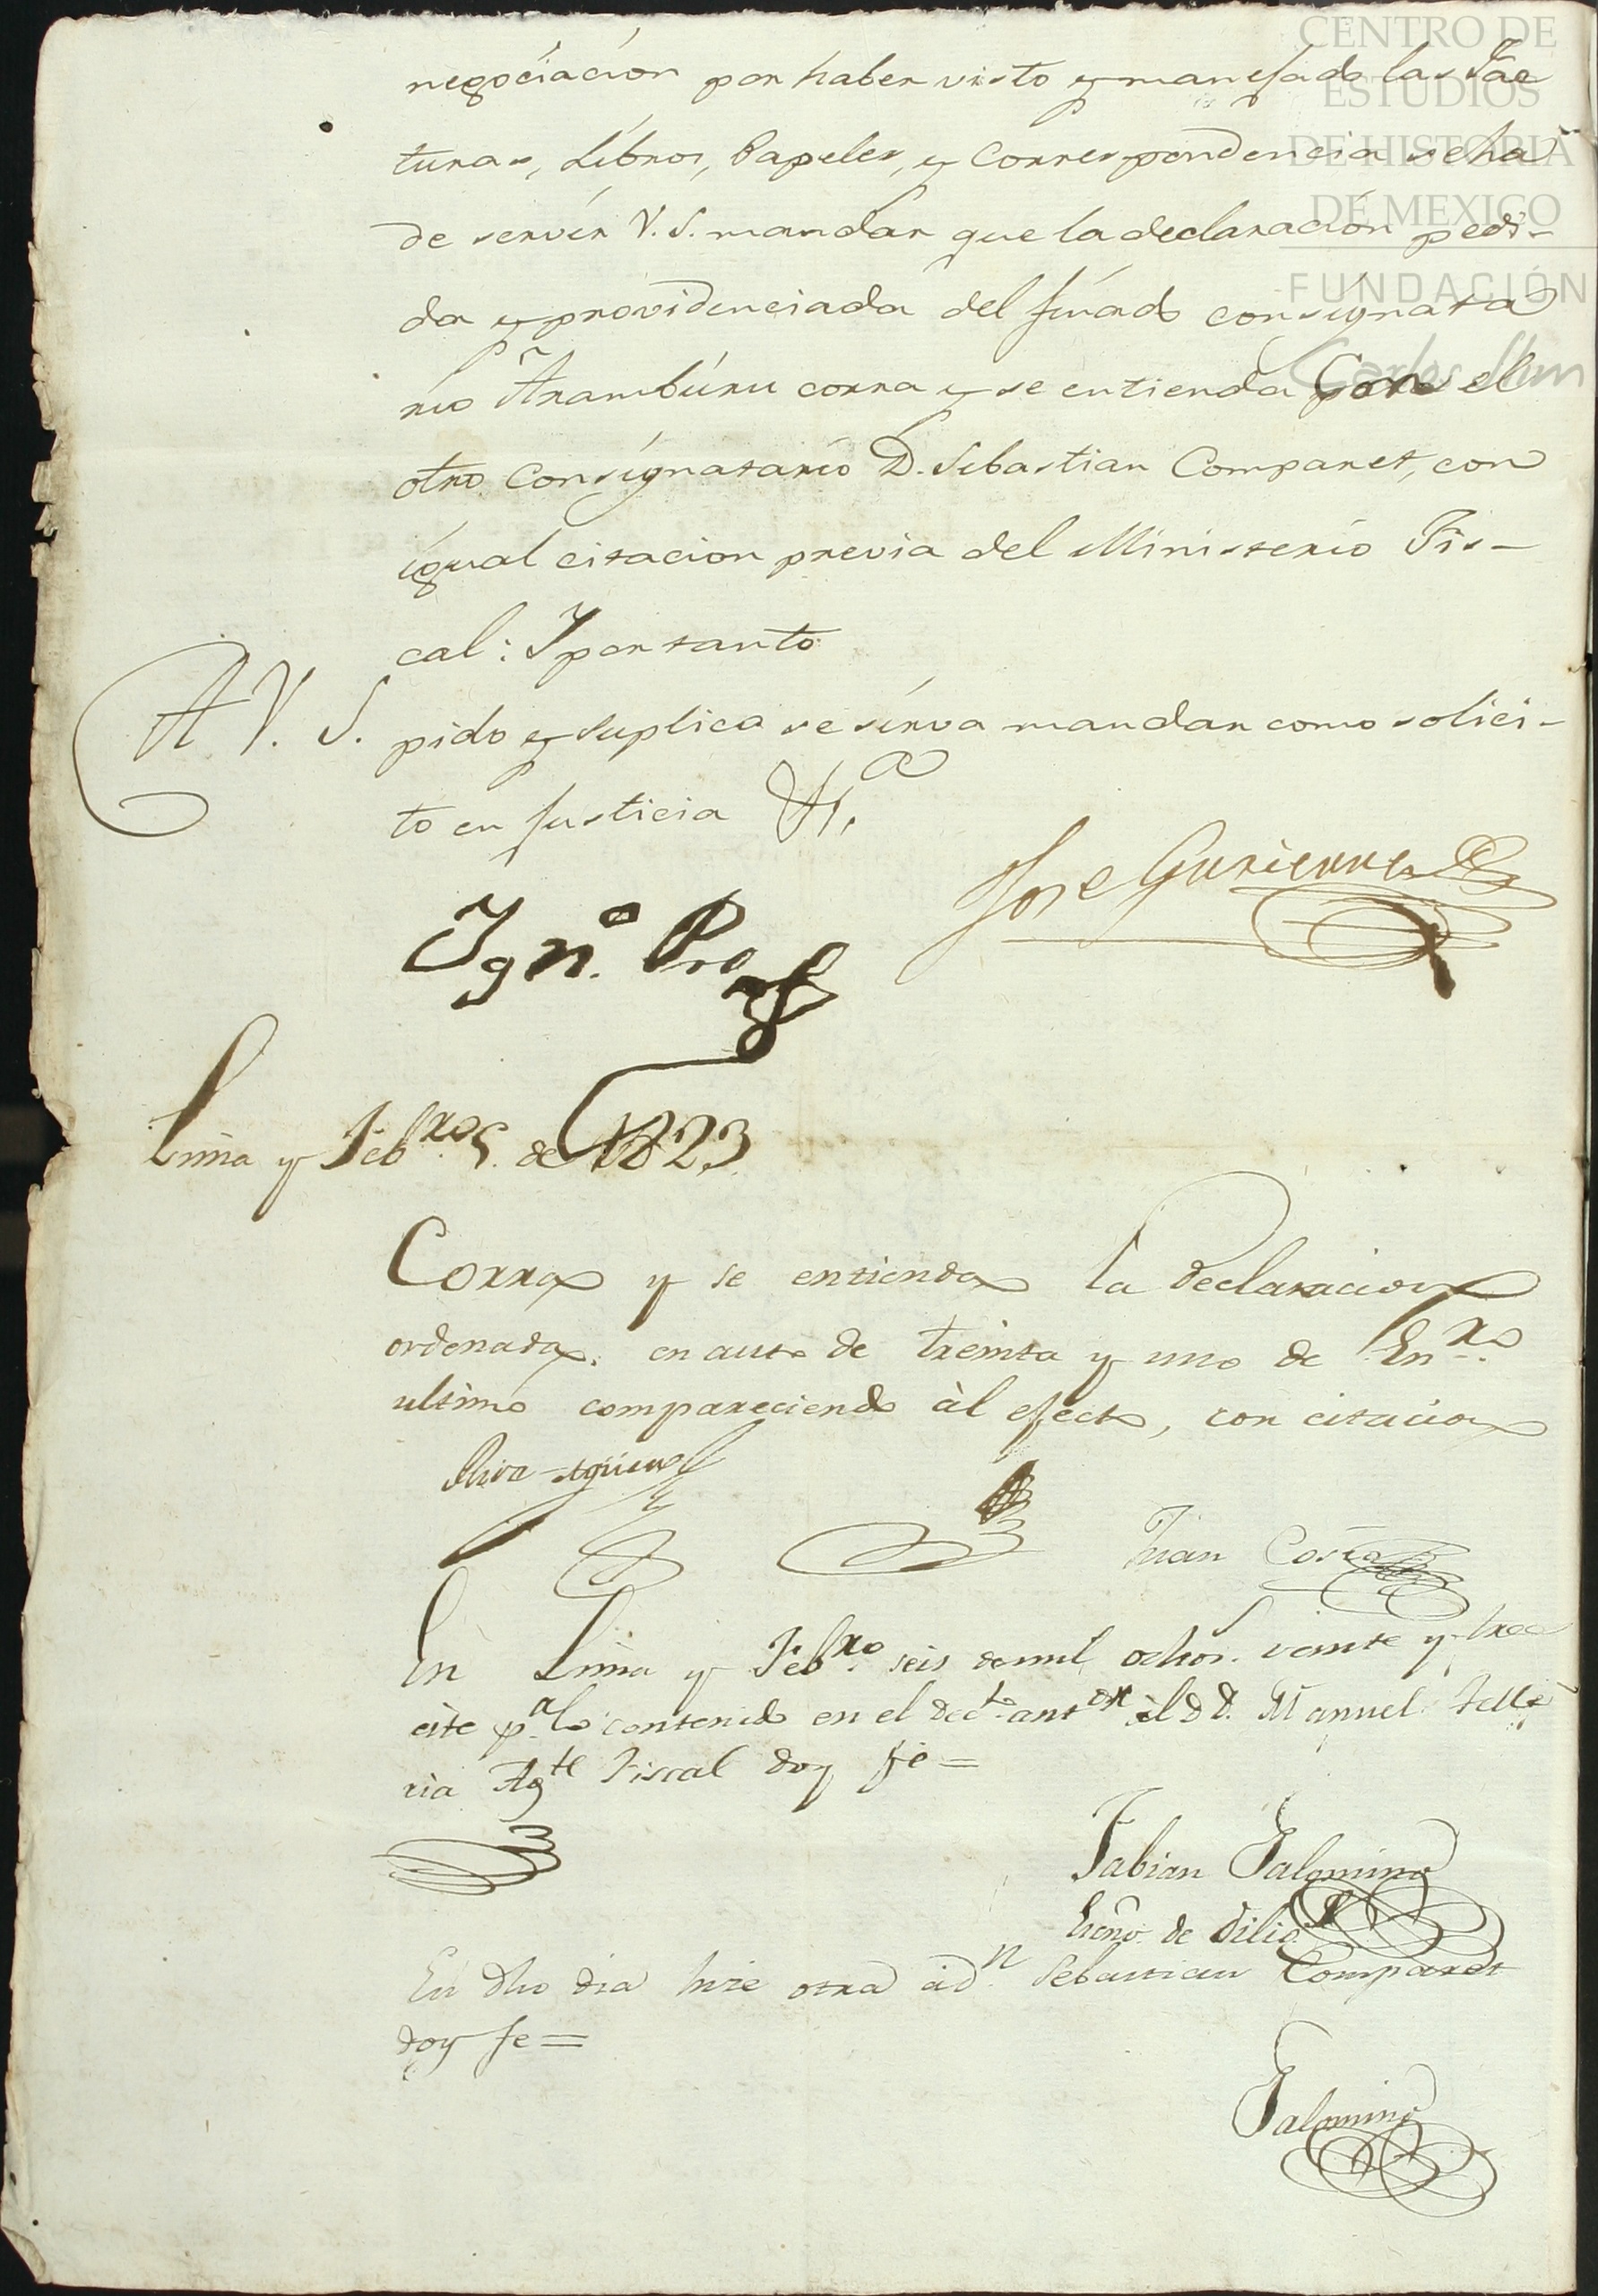 CENTRO DE
ESTUDIOS
DE HISTORIA
DE MEXICO
FUNDACIÓN
Carlos Slim
negociación por haber visto y manejado las Fac
turas, Libros, Papeles, y Correspondencia se ha
de servir V. S. mandar que la declaración pedi-
da y providenciada del finado consignata
rio Arambúru corra y se entienda con el
otro Consignatario D. Sebastian Comparet, con
igual citacion previa del Ministerio Fis-
cal: Y por tanto
A V. S. pido y suplico se sirva mandar como solici-
to en Justicia &.ª
Jose Gutierrez
Ign.º Pro
Lima y Feb.ro 5. de 1823
Corra y se entienda la declaracion
ordenada en auto de treinta y uno de En.ro
ultimo compareciendo àl efecto, con citacion
Riva-Agüero
Juan Cosio
En Lima y Feb.ro seis de mil ochos. veinte y tres
cite p.ª lo contenido en el dec.to ant.or àl D D. Manuel Telle
ria Ag.te Fiscal doy fe =
Fabian Palomino
Escño. de Dilig.s
En dho dia hize otra àd.n Sebastian Comparet
doy fe =
Palomino